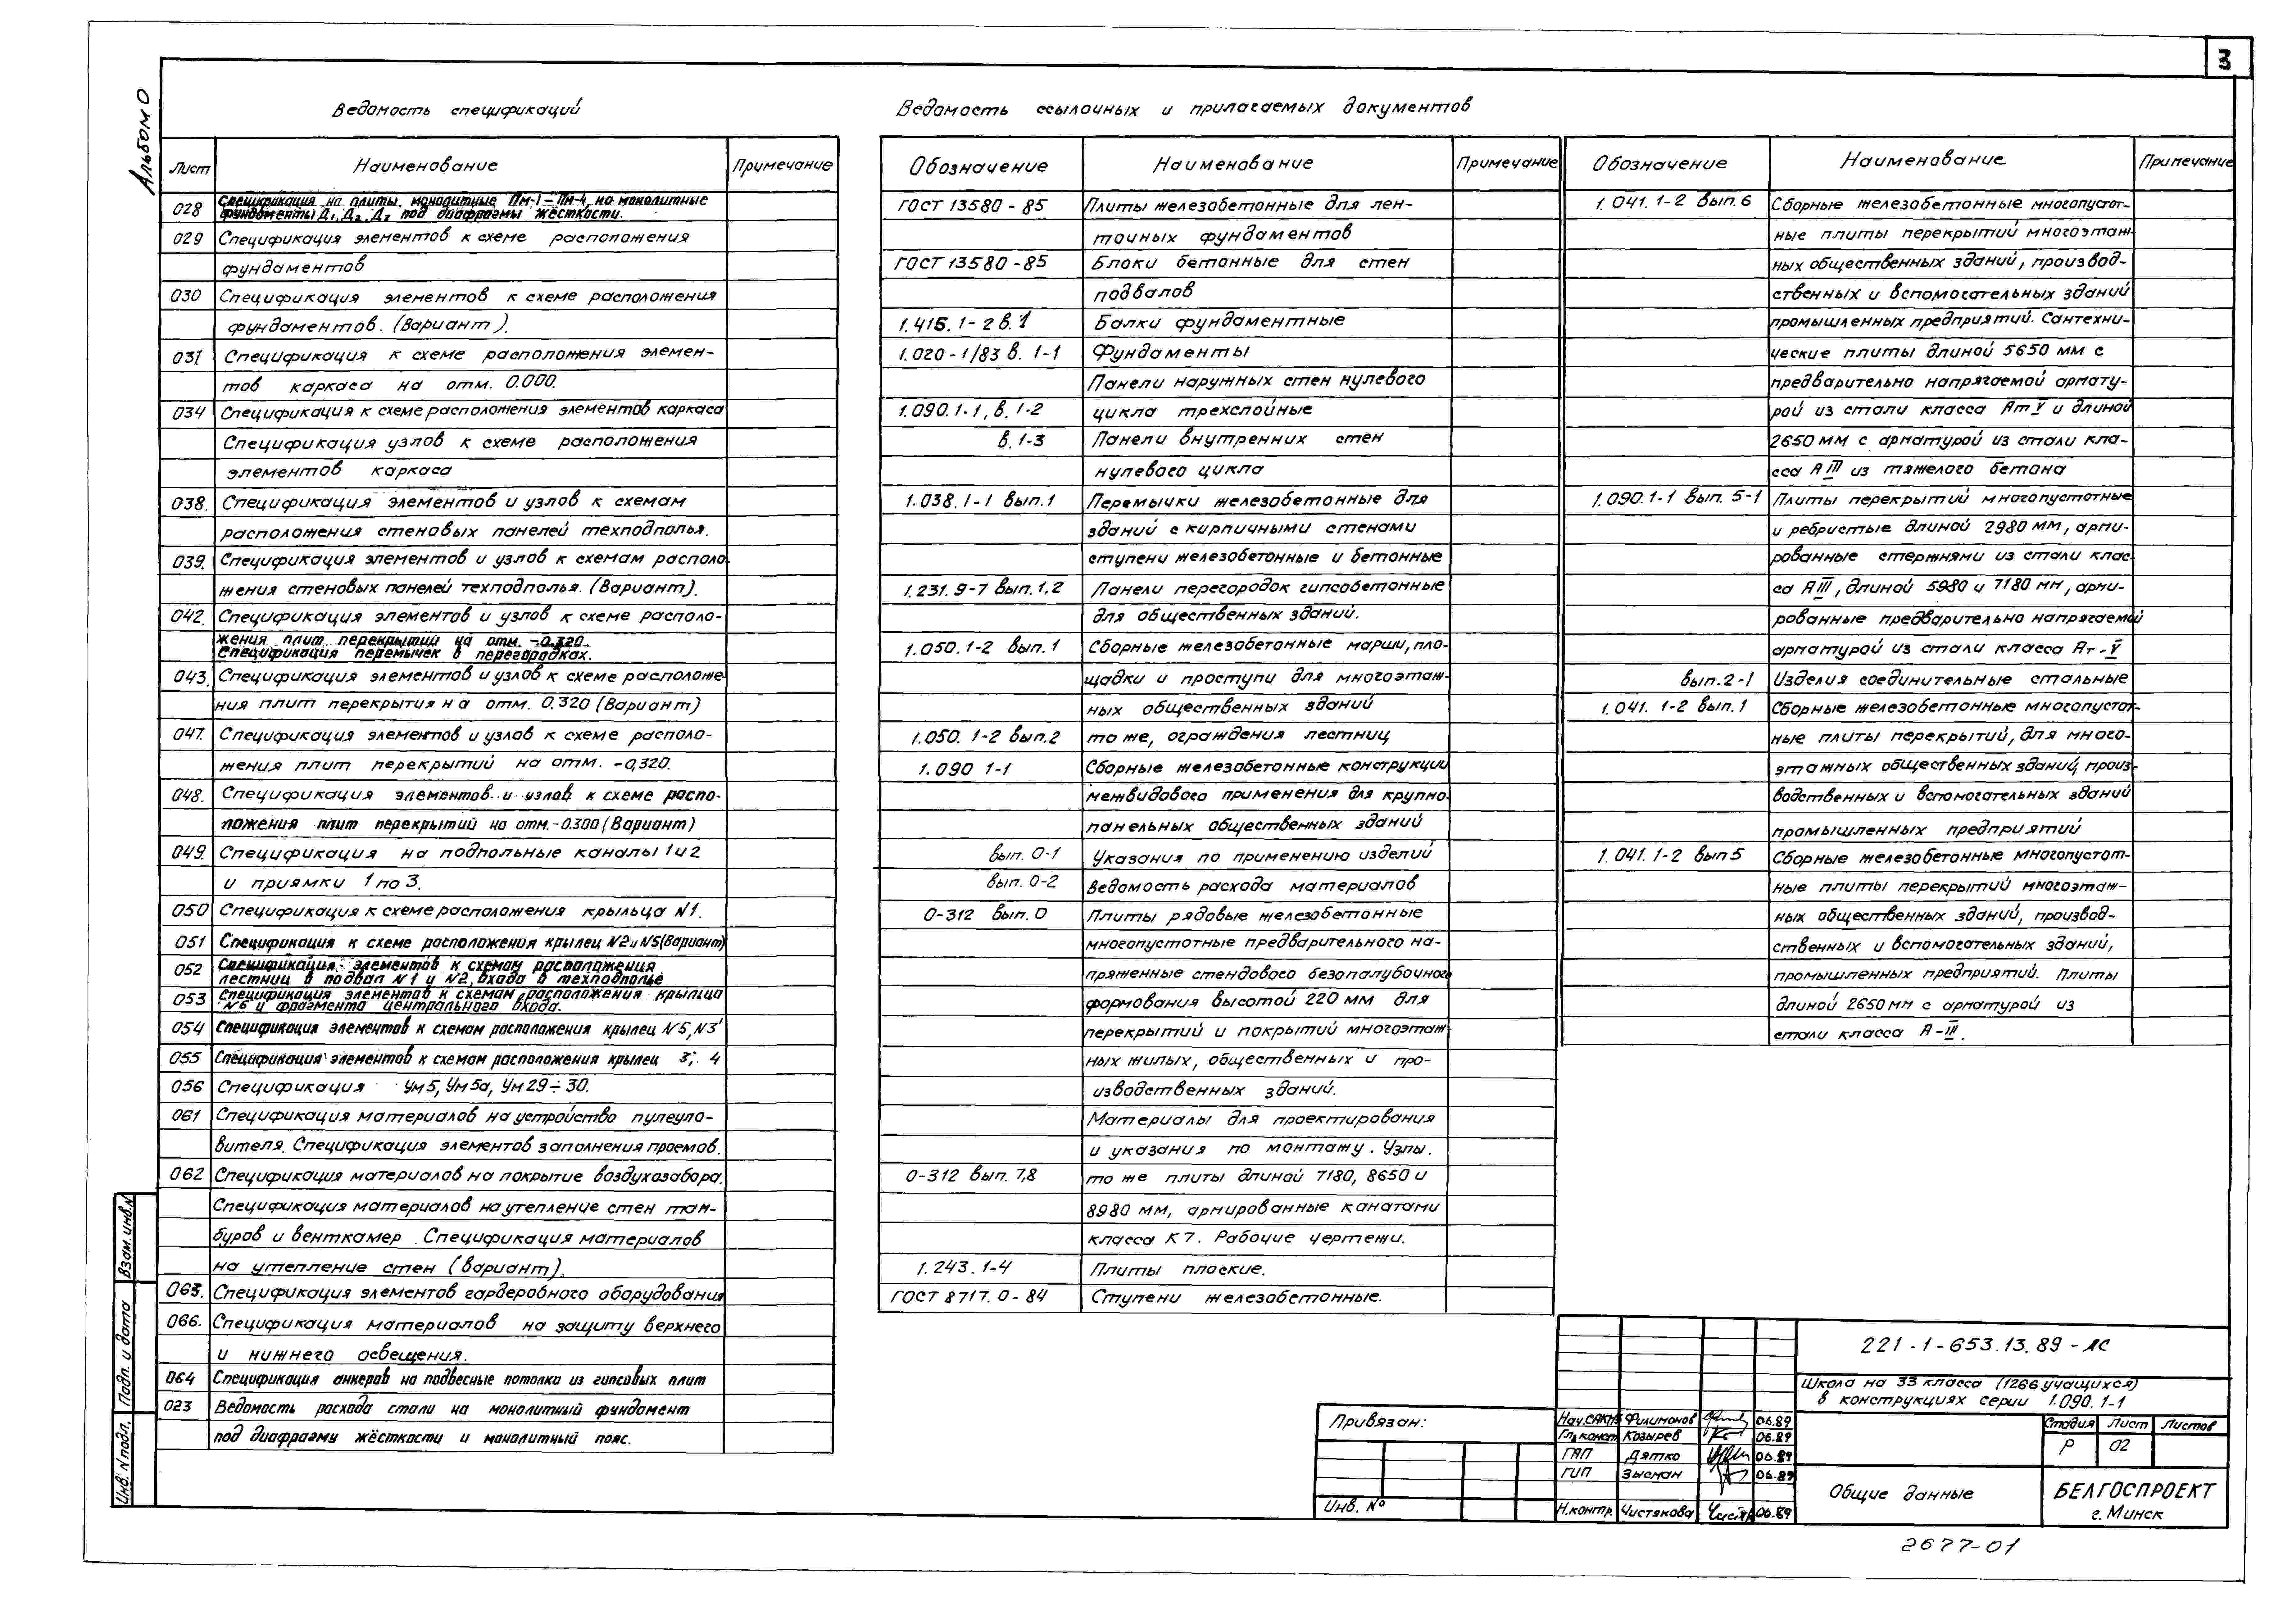 3
Альбом 0
Ведомость спецификаций
Лист Наименование Примечание
028 Спецификация на плиты монолитные Пм-1 – Пм-4, на монолитные
фундаменты Д1, Д2, Д3 под диафрагмы жёсткости.
029 Спецификация элементов к схеме расположения
фундаментов
030 Спецификация элементов к схеме расположения
фундаментов. (Вариант).
031 Спецификация к схеме расположения элемен-
тов каркаса на отм. 0.000.
034 Спецификация к схеме расположения элементов каркаса
Спецификация узлов к схеме расположения
элементов каркаса
038. Спецификация элементов и узлов к схемам
расположения стеновых панелей техподполья.
039. Спецификация элементов и узлов к схемам располо-
жения стеновых панелей техподполья. (Вариант).
042. Спецификация элементов и узлов к схеме располо-
жения плит перекрытий на отм. -0.320.
Спецификация перемычек в перегородках.
043. Спецификация элементов и узлов к схеме расположе-
ния плит перекрытия на отм. 0.320 (Вариант)
047. Спецификация элементов и узлов к схеме располо-
жения плит перекрытий на отм. -0,320.
048. Спецификация элементов и узлов к схеме распо-
ложения плит перекрытий на отм.-0.300 (Вариант)
049. Спецификация на подпольные каналы 1и2
и приямки 1 по 3.
050 Спецификация к схеме расположения крыльца N1.
051 Спецификация к схеме расположения крылец N2 и N5(Вариант)
052 Спецификация элементов к схемам расположения
лестниц в подвал N1 и N2, входа в техподполье
053 Спецификация элементов к схемам расположения крыльца
N6 и фрагмента центрального входа.
054 Спецификация элементов к схемам расположения крылец N5, N3'
055 Спецификация элементов к схемам расположения крылец 3; 4
056 Спецификация Ум5, Ум5а, Ум29÷30.
061 Спецификация материалов на устройство пулеуло-
вителя. Спецификация элементов заполнения проемов.
062 Спецификация материалов на покрытие воздухозабора.
Спецификация материалов на утепление стен там-
буров и венткамер. Спецификация материалов
на утепление стен (вариант).
063. Спецификация элементов гардеробного оборудования
066. Спецификация материалов на защиту верхнего
и нижнего освещения.
064 Спецификация анкеров на подвесные потолки из гипсовых плит
023 Ведомость расхода стали на монолитный фундамент
под диафрагму жёсткости и монолитный пояс.
Ведомость ссылочных и прилагаемых документов
Обозначение Наименование Примечание
ГОСТ 13580 - 85 Плиты железобетонные для лен-
точных фундаментов
ГОСТ 13580 - 85 Блоки бетонные для стен
подвалов
1.415.1-2 в.1 Балки фундаментные
1.020-1/83 в. 1-1 Фундаменты
Панели наружных стен нулевого
1.090.1-1, в.1-2 цикла трехслойные
в.1-3 Панели внутренних стен
нулевого цикла
1.038.1-1 вып.1 Перемычки железобетонные для
зданий с кирпичными стенами
ступени железобетонные и бетонные
1.231.9-7 вып.1,2 Панели перегородок гипсобетонные
для общественных зданий.
1.050.1-2 вып.1 Сборные железобетонные марши, пло-
щадки и проступи для многоэтаж-
ных общественных зданий
1.050.1-2 вып.2 то же, ограждения лестниц
1.090 1-1 Сборные железобетонные конструкции
межвидового применения для крупно-
панельных общественных зданий
вып. 0-1 Указания по применению изделий
вып. 0-2 Ведомость расхода материалов
0-312 вып. 0 Плиты рядовые железобетонные
многопустотные предварительного на-
пряженные стендового безопалубочного
формования высотой 220 мм для
перекрытий и покрытий многоэтаж-
ных жилых, общественных и про-
изводственных зданий.
Материалы для проектирования
и указания по монтажу. Узлы.
0-312 вып. 7,8 то же плиты длиной 7180, 8650 и
8980 мм, армированные канатами
класса К7. Рабочие чертежи.
1.243.1-4 Плиты плоские.
ГОСТ 8717.0-84 Ступени железобетонные.
Обозначение Наименование Примечание
1.041.1-2 вып.6 Сборные железобетонные многопустот-
ные плиты перекрытий многоэтаж-
ных общественных зданий, производ-
ственных и вспомогательных зданий
промышленных предприятий. Сантехни-
ческие плиты длиной 5650 мм с
предварительно напрягаемой армату-
рой из стали класса Ат V и длиной
2650 мм с арматурой из стали кла-
сса А III из тяжелого бетона
1.090.1-1 вып. 5-1 Плиты перекрытий многопустотные
и ребристые длиной 2980 мм, арми-
рованные стержнями из стали клас-
са А III, длиной 5980 и 7180 мм, арми-
рованные предварительно напрягаемой
арматурой из стали класса Ат-V
вып.2-1 Изделия соединительные стальные
1.041.1-2 вып.1 Сборные железобетонные многопустот-
ные плиты перекрытий, для много-
этажных общественных зданий, произ-
водственных и вспомогательных зданий
промышленных предприятий
1.041.1-2 вып 5 Сборные железобетонные многопустот-
ные плиты перекрытий многоэтаж-
ных общественных зданий, производ-
ственных и вспомогательных зданий,
промышленных предприятий. Плиты
длиной 2650 мм с арматурой из
стали класса А-III.
Взам. инв.N
Подп. и дата
Инв. N подл.
Привязан:
Инв. №
Нач.САКМ5 Филимонов 06.89
Гл. конст Козырев 06.89
ГАП Дятко 06.89
ГИП Зысман 06.89
Н.контр. Чистякова 06.89
221-1-653.13.89-АС
Школа на 33 класса (1266 учащихся)
в конструкциях серии 1.090.1-1
Стадия Лист Листов
Р 02
Общие данные
БЕЛГОСПРОЕКТ
г. Минск
2677-01